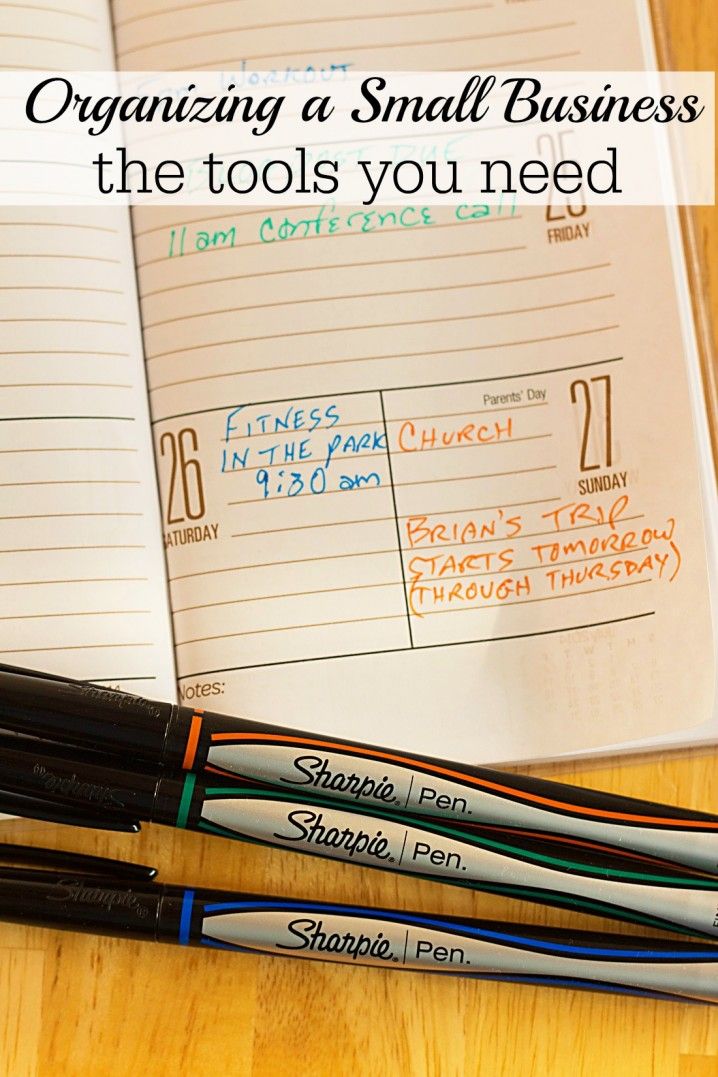 Organizing a Small Business
the tools you need
WORKOUT
DUE
11am CONFERENCE call
25
FRIDAY
26
SATURDAY
FITNESS
IN THE PARK
9:30 am
Parents' Day
27
SUNDAY
CHURCH
BRIAN'S TRIP
STARTS TOMORROW
(THROUGH THURSDAY)
Notes:
Sharpie
Sharpie® Pen.
Sharpie
Sharpie® Pen.
Sharpie
Sharpie® Pen.